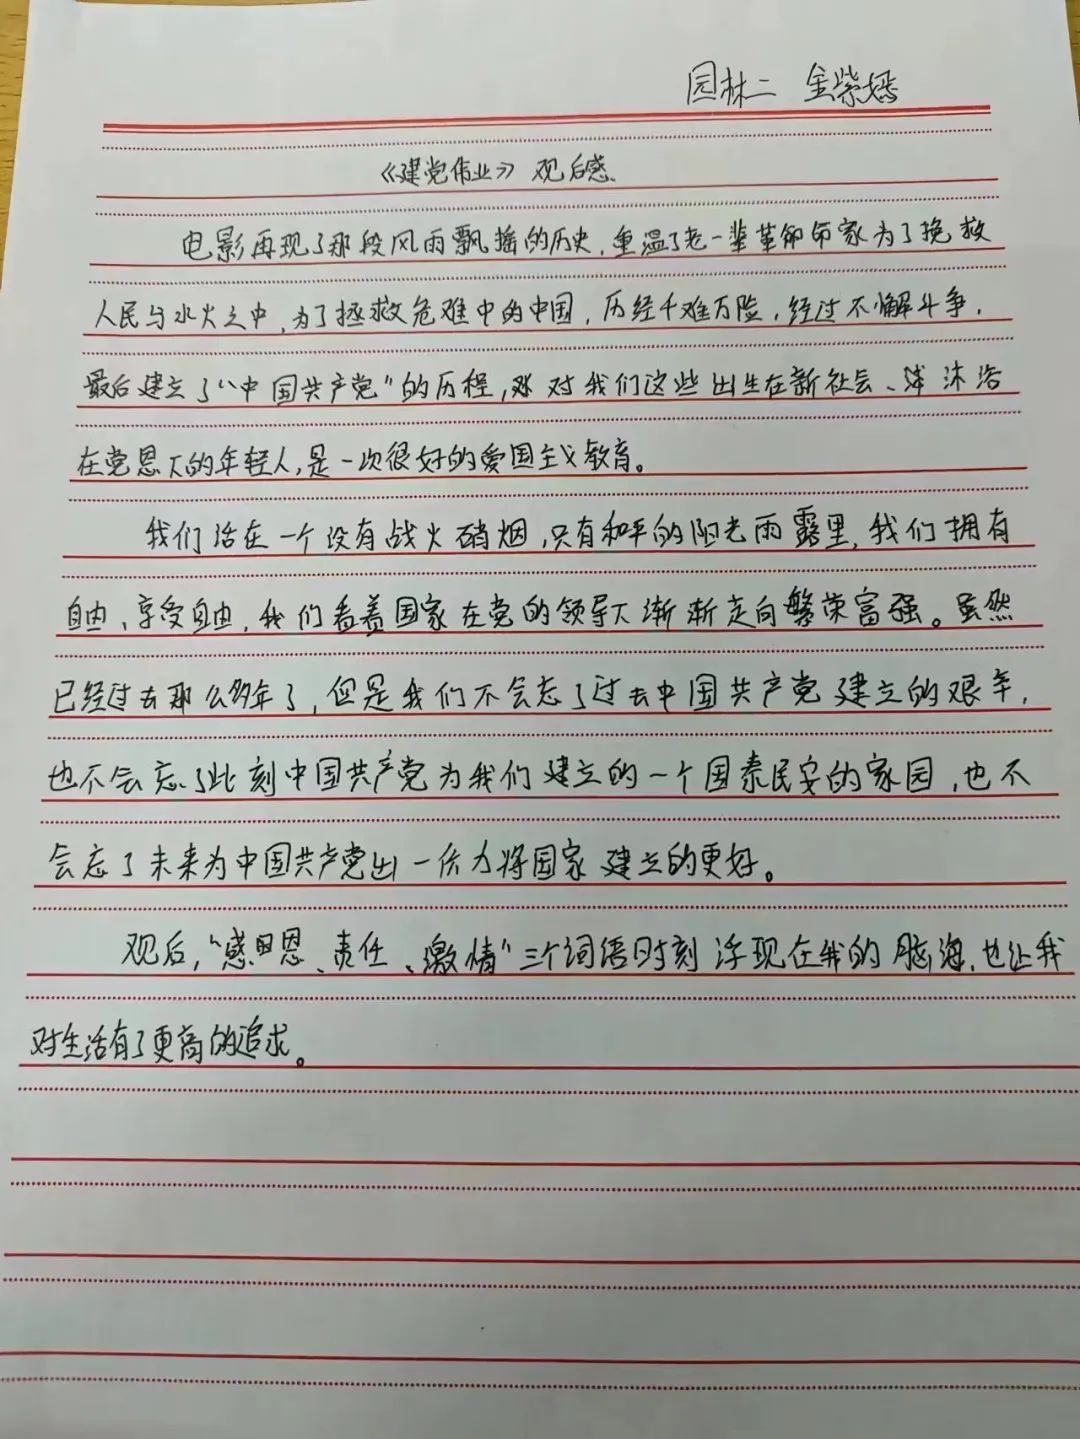 园林二 金紫嫣
《建党伟业》观后感
电影再现了那段风雨飘摇的历史,重温了老一辈革命家为了挽救
人民与水火之中,为了拯救危难中的中国,历经千难万险,经过不懈斗争,
最后建立了“中国共产党”的历程,对我们这些出生在新社会、沐浴
在党恩下的年轻人,是一次很好的爱国主义教育。
我们活在一个没有战火硝烟,只有和平的阳光雨露里,我们拥有
自由、享受自由,我们看着国家在党的领导下渐渐走向繁荣富强。虽然
已经过去那么多年了,但是我们不会忘了过去中国共产党建立的艰辛,
也不会忘了此刻中国共产党为我们建立的一个国泰民安的家园,也不
会忘了未来为中国共产党出一份力将国家建立的更好。
观后,“感恩、责任、激情”三个词语时刻浮现在我的脑海,也让我
对生活有了更高的追求。